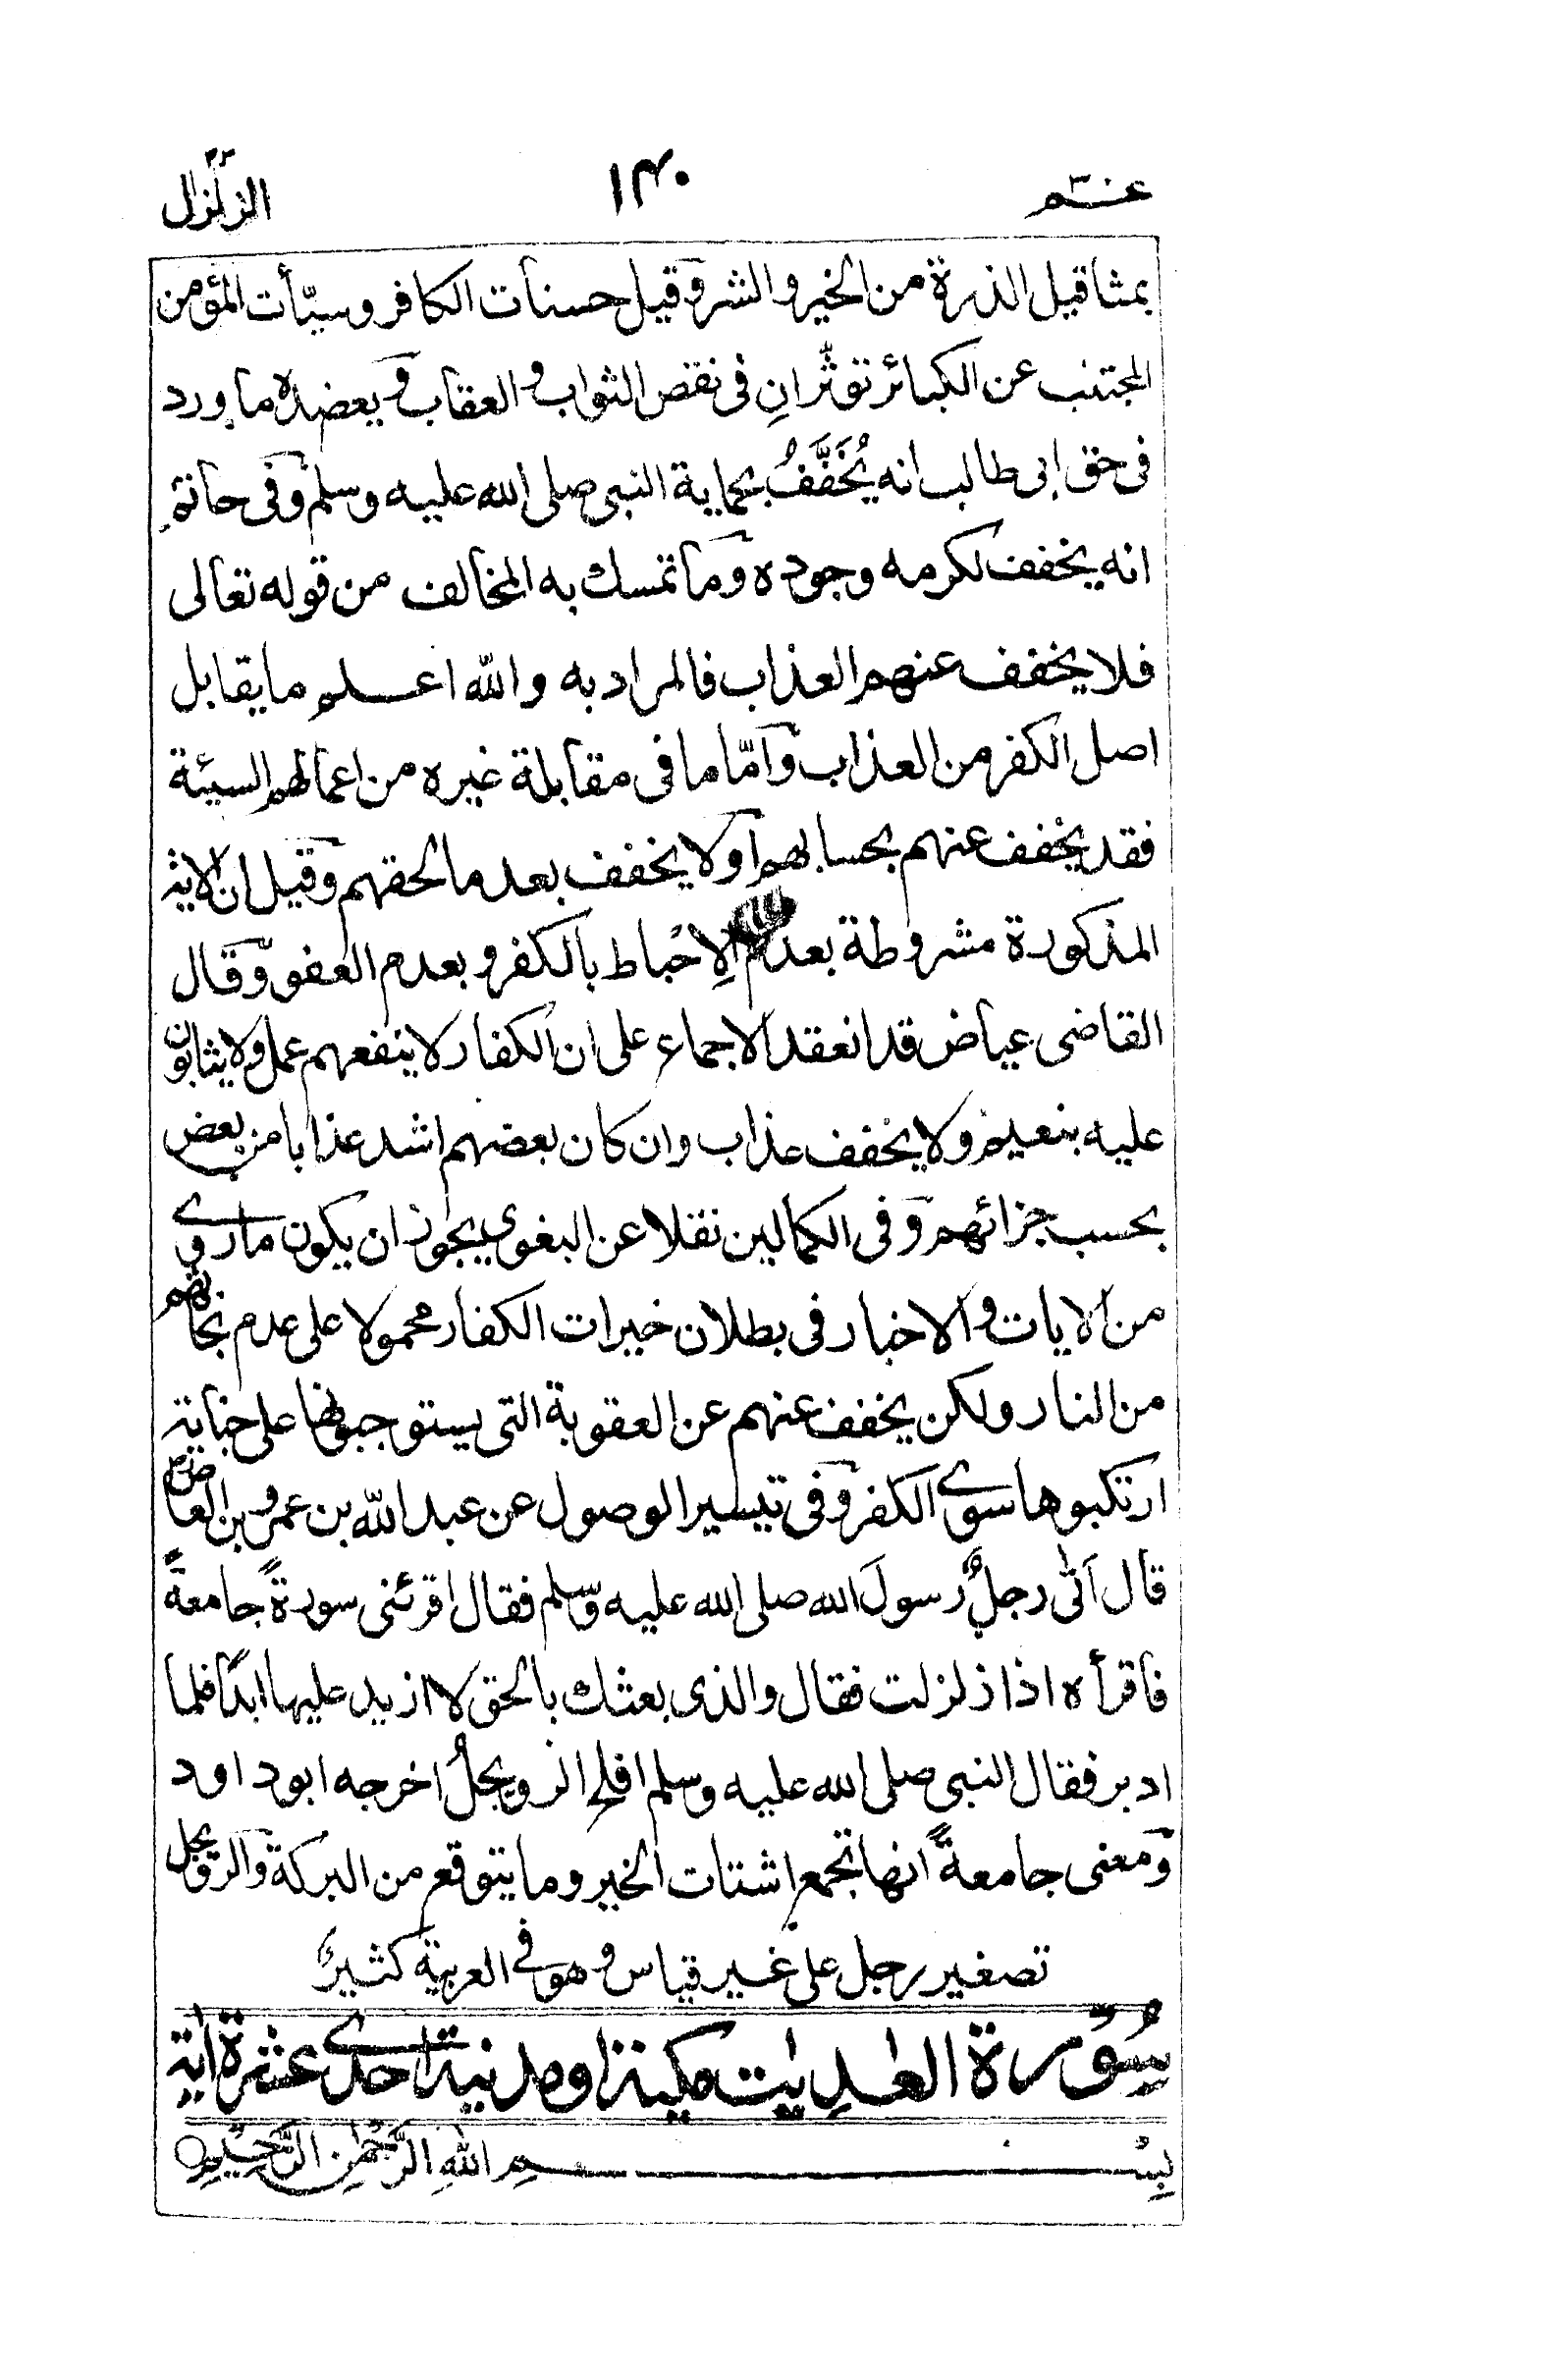 عنم ١٤٠ الزلزال
بمثاقيل الذرة من الخير والشر وقيل حسنات الكافر وسيّأت المؤمن
المجتنب عن الكبائر تؤثّرانِ فى نقص الثواب والعقاب ويعضده ماورد
فى حق ابى طالب انه يُخَفَّفُ بحماية النبى صلى الله عليه وسلم وفى حاتم
انه يخفف لكرمه وجوده وما تمسك به المخالف من قوله تعالى
فلا يخفف عنهم العذاب فالمراد به والله اعلم ما يقابل
اصل الكفر من العذاب وامّا ما فى مقابلة غيره من اعمالهم السيئة
فقد يخفف عنهم بحسابهم اولا يخفف بعد ما لحقهم وقيل ان الاية
المذكورة مشروطة بعدم الاِحْباط بالكفر وبعدم العفو وقال
القاضى عياض قد انعقد الاجماع على ان الكفار لا ينفعهم عمل ولا يثابون
عليه بنعيم ولا يخفف عذاب وان كان بعضهم اشد عذابا من بعض
بحسب جزائهم وفى الكمالين نقلا عن البغوى يجوز ان يكون ما روى
من الايات والاخبار فى بطلان خيرات الكفار محمولا على عدم نجاتهم
من النار ولكن يخفف عنهم عن العقوبة التى يستوجبونها على جناية
ارتكبوها سوى الكفر وفى تيسير الوصول عن عبد الله بن عمرو بن العاص
قال اَتٰى رجلٌ رسولَ الله صلى الله عليه وسلم فقال اقرئنى سورةً جامعةً
فاقرأه اذا زلزلت فقال والذى بعثك بالحق لا ازيد عليها ابدًا فلما
ادبر فقال النبى صلى الله عليه وسلم افلح الرويجلُ اخرجه ابوداود
ومعنى جامعةً انها تجمع اشتات الخير وما يتوقع من البركة والرويجل
تصغير رجل على غير قياس وهو فى العربية كثيرٌ
سُوْرة العٰدِيٰت مكية او مدنية احدى عشرة اٰية
بِسْمِ اللهِ الرَّحْمٰنِ الرَّحِيْمِ